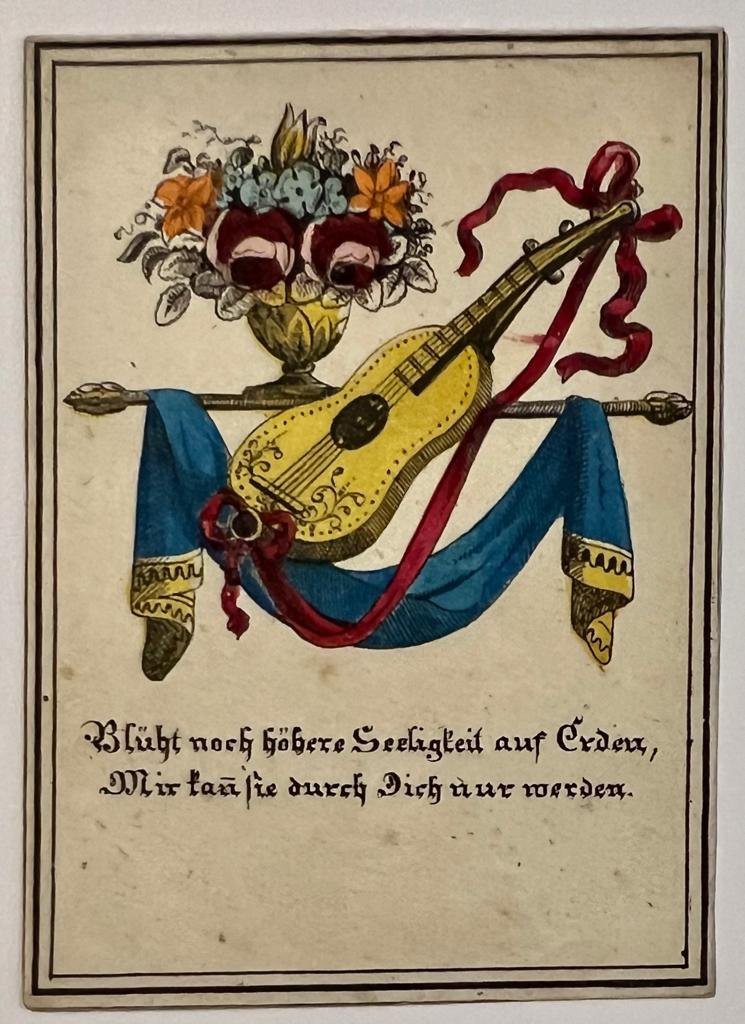 Blüht noch höhere Seeligkeit auf Erden,
Mir kan̄ sie durch Dich nur werden.